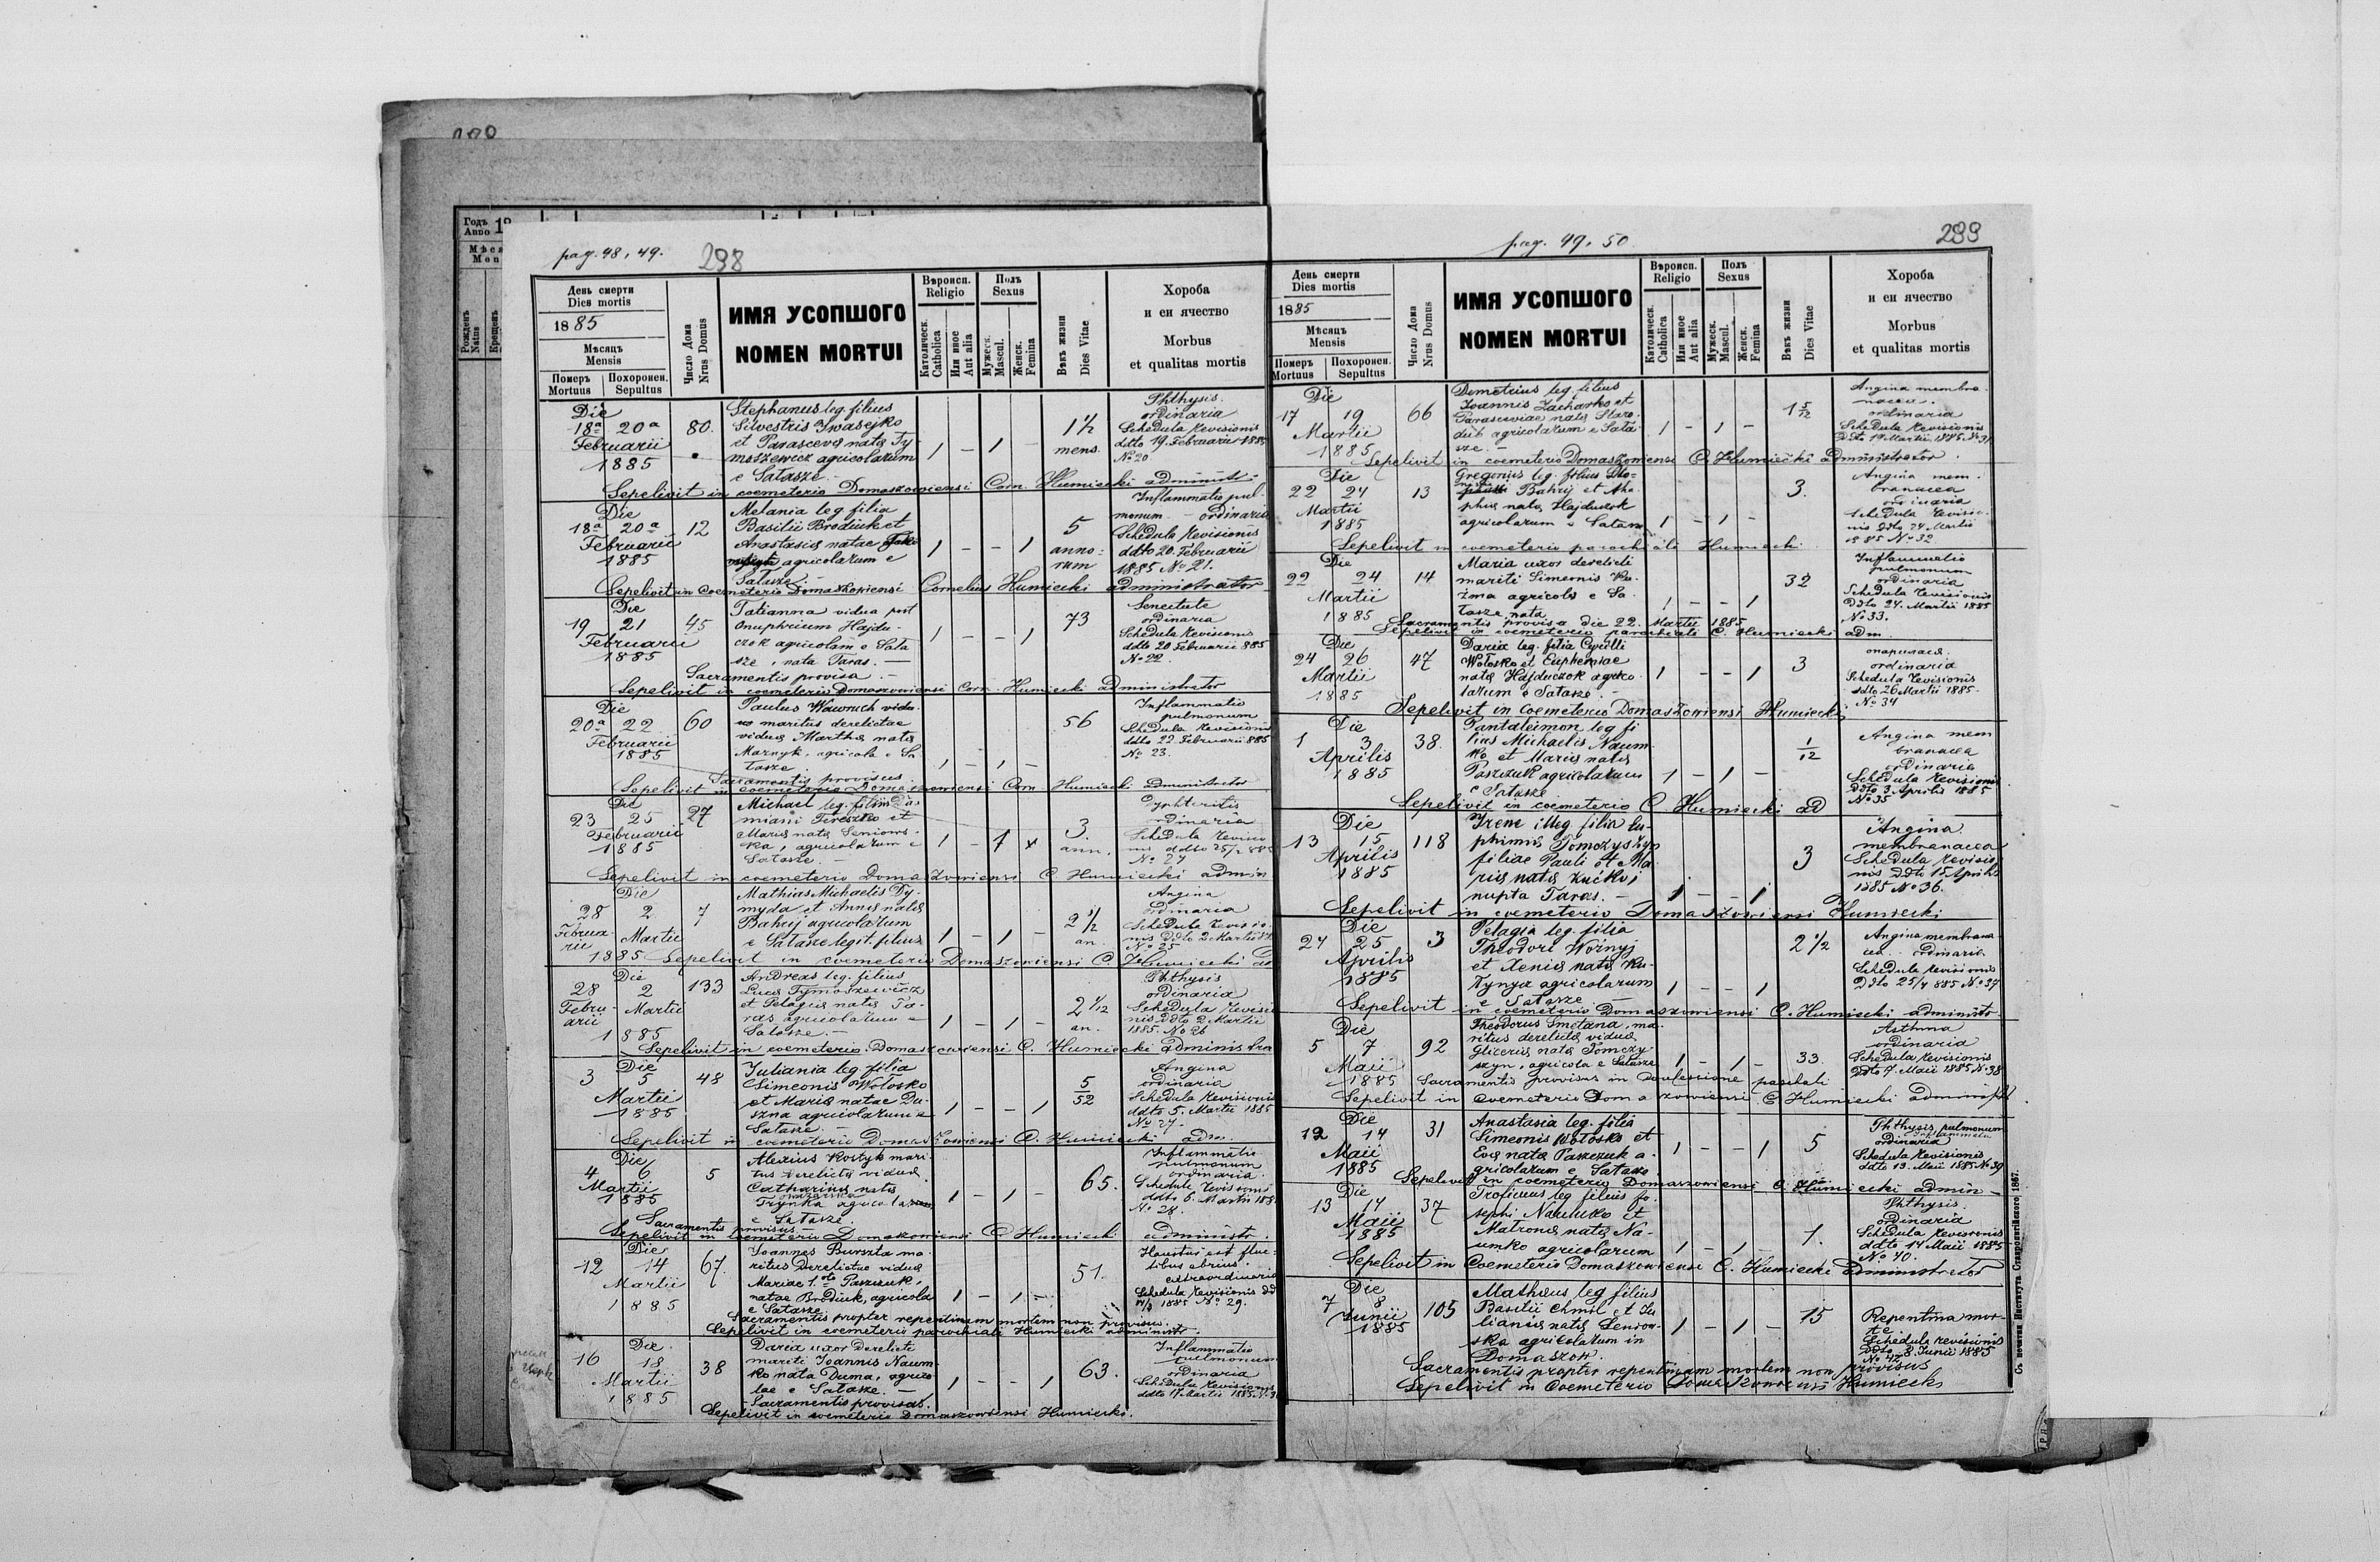 Годъ
Anno
pag. 48, 49.
298
День смерти
Dies mortis
1885
Мѣсяцъ
Mensis
Померъ
Mortuus
Похоронен.
Sepultus
Число Дома
Nrus Domus
ИМЯ УСОПШОГО
NOMEN MORTUI
Вѣроисп.
Religio
Католическ.
Catholica
Или иное
Aut alia
Полъ
Sexus
Мужеск.
Mascul.
Женск.
Femina
Вѣкъ жизни
Dies Vitae
Хороба
и еи ячество
Morbus
et qualitas mortis
Die
18a 20a
Februarii
1885
80.
Stephanus leg. filius
Silvestris Iwasejko
et Parascevæ natæ Ty-
moszewicz agricolarum
e Sałasze
1 - 1 -
1 1/2
mens.
Phthysis
ordinaria
Schedula revisionis
ddto 19. Februarii 1885
No 20.
Sepelivit in coemeterio Domaszowiensi Corn. Humiecki administr.
Die
18a 20a
Februarii
1885
12
Melania leg filia
Basilii Brodiuk et
Anastasiæ natae
agricolarum e
Sałasze
1 - - 1
5
anno-
rum
Inflammatio pul-
monum - ordinaria
Schedula Revisionis
ddto 20. Februarii
1885 No 21.
Sepelivit in coemeterio Domaszowiensi Cornelius Humiecki administrator
Die
19 21
Februarii
1885
45
Tatianna vidua post
Onuphrium Hajdu-
czok agricolam e Sała
sze, nata Taras. —
1 - - 1
73
Senectute
ordinaria
Schedula revisionis
ddto 20 Februarii 885
No 22.
Sacramentis provisa. —
Sepelivit in coemeterio Domaszowiensi Corn. Humiecki administrator
Die
20a 22
Februarii
1885
60
Paulus Wawruch
maritus derelictae
viduæ Marthæ natæ
Maznyk, agricola e Sa
łasze
1 - 1 -
56
Inflammatio
pulmonum
Schedula Revisionis
ddto 22. Februarii 885
No 23.
Sacramentis provisus.
Sepelivit in coemeterio Domaszowiensi Corn Humiecki administrator
Die
23 25
Februarii
1885
27
Michael leg. filius Da-
miani Tereszko et
Mariæ natæ Seniows-
ka, agricolarum e
Sałasze. —
1 - 1
3.
ann.
Dyphteritis
ordinaria
Schedula revisio
nis ddto 25/2 885
No 24
Sepelivit in coemeterio Domaszowiensi C Humiecki admin
Die
28 2
Februa-
rii Martii
1885
7
Mathias Michaelis Dy-
myda et Annæ natæ
Bahrij agricolarum
e Sałasze legit. filius
1 - 1 -
2 1/2
an.
Angina
ordinaria
Schedula revisio
nis Ddto 2 Martii
No 25
Sepelivit in coemeterio Domaszowiensi C Humiecki ad
Die
28 2
Febru- Martii
arii
1885
133
Andreas leg. filius
Lucæ Tymoszewicz
et Pelagiæ natæ Ta-
ras agricolarum e
Sałasze. —
1 - 1 -
2 1/12
an.
Phthysis
ordinaria
Schedula Revisio
nis Ddto 2 Martii
1885. No 26
Sepelivit in coemeterio Domaszowiensi C. Humiecki administra
Die
3 5
Martii
1885
48
Juliania leg filia
Simeonis Wołosko
et Mariæ natae Du-
szna agricolarum e
Sałasze. —
1 - - 1
5/52
Angina
ordinaria
Schedula revisionis
ddto 5. Martii 1885
No 27.
Sepelivit in coemeterio Domaszowiensi C. Humiecki adm.
Die
4 6
Martii
1885
5
Alexius Kostyk mari-
tus derelictæ viduæ
Catharinæ natæ
Trynka agricola
e Sałasze.
1 - 1 -
65.
Inflammatio
pulmonum
ordinaria
Schedula revisionis
ddto 6. Martii 188
No 28.
Sacramentis provisus —
Sepelivit in coemeterio Domaszowiensi C Humiecki administr.
Die
12 14
Martii
1885
67.
Joannes Burszta ma-
ritus derelictae viduæ
Mariae 1. voto Paszczuk,
natae Brodiuk, agricola
e Sałasze
1 - 1 -
51.
Haustus est fluc-
tibus ebrius.
extraordinaria
Schedula Revisionis dd
14/3 1885 No 29.
Sacramentis propter repentinam mortem non provisus.
Sepelivit in coemeterio parochiali Humiecki administr.
Die
16 18
Martii
1885
38
Daria uxor Derelicti
mariti Joannis Naum-
ko nata Duma, agrico
lae e Sałasze. —
1 - - 1
63.
Inflammatio
pulmonum
ordinaria
Schedula Revisionis
ddto 17. Martii 1885
Sacramentis provisa.
Sepelivit in coemeterio Domaszowiensi Humiecki.
pag. 49, 50
299
День смерти
Dies mortis
1885
Мѣсяцъ
Mensis
Померъ
Mortuus
Похоронен.
Sepultus
Число Дома
Nrus Domus
ИМЯ УСОПШОГО
NOMEN MORTUI
Вѣроисп.
Religio
Католическ.
Catholica
Или иное
Aut alia
Полъ
Sexus
Мужеск.
Mascul.
Женск.
Femina
Вѣкъ жизни
Dies Vitae
Хороба
и еи ячество
Morbus
et qualitas mortis
Die
17 19
Martii
1885
66
Demetrius leg. filius
Joannis Zacharko et
Parasceviae natæ Staro-
dub agricolarum e Sała-
sze. —
1 - 1 -
1 5/12
Angina membra-
nacea.
ordinaria
Schedula revisionis
Ddto 19 Martii 1885. No 31
Sepelivit in coemeterio Domaszowiensi C Humiecki administrator.
Die
22 24
Martii
1885
13
Gregorius leg. filius
Bahrij et
natæ Hajduczok
agricolarum e Sałasze
1 - 1 -
3.
Angina mem-
branacea
ordinaria
Schedula revisio-
nis ddto 24 Martii
1885 No 32
Sepelivit in coemeterio parochiali Humiecki
Die
22 24
Martii
1885
14
Maria uxor derelicti
mariti Simeonis Ku-
zma agricolæ e Sa-
łasze nata
1 - - 1
32
Inflammatio
pulmonum
ordinaria
Schedula revisionis
Ddto 24. Martii 1885
No 33.
Sacramentis provisa die 22. Martii 1885
Sepelivit in coemeterio parochiali C. Humiecki adm.
Die
24 26
Martii
1885
47
Daria leg. filia Cyrilli
Wołosko et Euphemiae
natæ Hajduczok agrico-
larum e Sałasze. —
1 - - 1
3
опарилася.
ordinaria
Schedula revisionis
ddto 26 Martii 1885-
No 34
Sepelivit in Coemeterio Domaszowiensi Humiecki
Die
1 3
Aprilis
1885
38.
Pantaleimon leg fi
lius Michaelis Naum-
ko et Mariæ natæ
Paszczuk agricolarum
e Sałasze
1 - 1 -
1/12
Angina mem
branacea
ordinaria
Schedula revisionis
Ddto 3 Aprilis 1885
No 35
Sepelivit in coemeterio C Humiecki ad
Die
13 15
Aprilis
1885
118
Irene illeg. filia Eu-
phimiæ Tomczyszyn
filiae Pauli et Ma-
riæ natæ Kućko,
nupta Taras. —
1 - - 1
3
Angina
membranacea
Schedula revisio
nis Ddto 15 Aprilis
1885 No 36.
Sepelivit in coemeterio Domaszowiensi Humiecki
Die
24 25
Aprilis
1885
3
Pelagia leg. filia
Theodori Woźnyj
et Xeniæ natæ Ku-
łynycz agricolarum
e Sałasze —
1 - - 1
2 1/2
Angina membrana-
cea. ordinaria
Schedula revisionis
Ddto 25/4 885 No 37
Sepelivit in coemeterio Domaszowiensi C. Humiecki administr
Die
5 7
Maii
1885
92
Theodorus Smetana, ma-
ritus derelictæ viduæ
Gliceriæ natæ Tomczy-
szyn, agricola e Sałasze
1 - 1 -
33.
Asthma
ordinaria
Schedula revisionis
Ddto 7. Maii 1885 No 38
Sacramentis provisus in confessione paschali
Sepelivit in coemeterio Domaszowiensi C Humiecki administ.
Die
12 14
Maii
1885
31
Anastasia leg. filia
Simeonis Wołosko et
Evæ natæ Paszczuk a-
gricolarum e Sałasze
1 - - 1
5
Phthysis pulmonum
ordinaria
Schedula revisionis
ddto 13. Maii 1885 No 39
Sepelivit in coemeterio Domaszowiensi C. Humiecki admin —
Die
13 14
Maii
1885
37
Troficius leg filius Jo-
sephi Naumko et
Matronæ natæ Na-
umko agricolarum
1 - 1 -
1.
Phthysis.
ordinaria
Schedula revisionis
ddto 14 Maii 1885
No 40.
Sepelivit in Coemeterio Domaszowiensi C. Humiecki administrator
Die
7 8
Junii
1885
105
Matheus leg filius
Basilii Chmil et Ju-
lianiæ natæ Seniow-
ska agricolarum in
Domaszow.
1 - 1 -
15
Repentina mor-
te
Schedula revisionis
Ddto 8. Junii 1885
No 42
Sacramentis propter repentinam mortem non provisus
Sepelivit in Coemeterio Domaszowiensi Humiecki
Съ печатни Института Ставропигійского 1867.